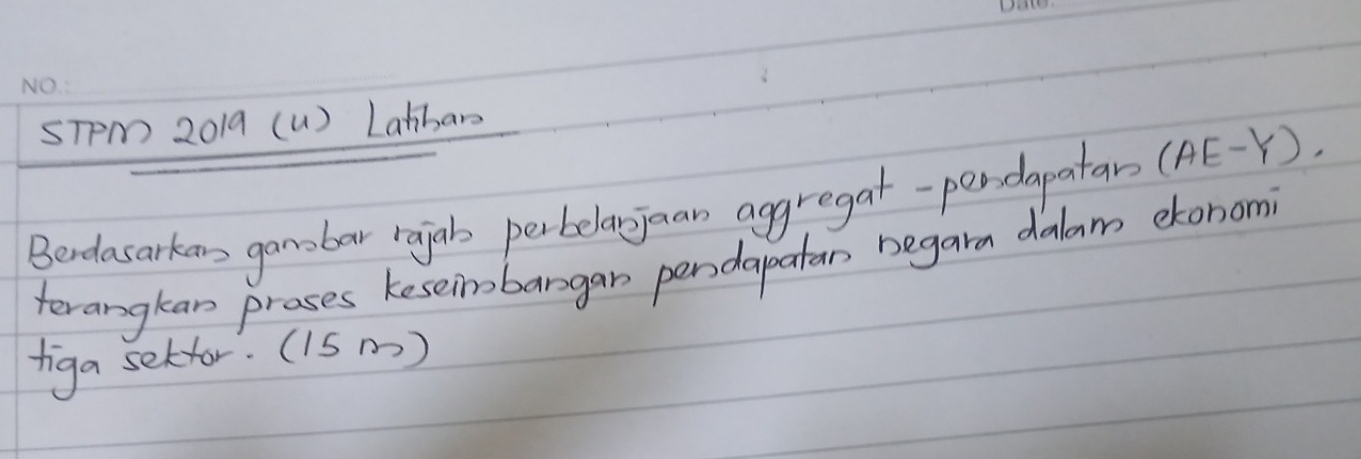 Date.
NO.:
STPM 2019 (U) Latihan
Berdasarkan gambar rajah perbelanjaan aggregat - pendapatan (AE-Y).
terangkan proses keseimbangan pendapatan negara dalam ekonomi
tiga sektor. (15 m)